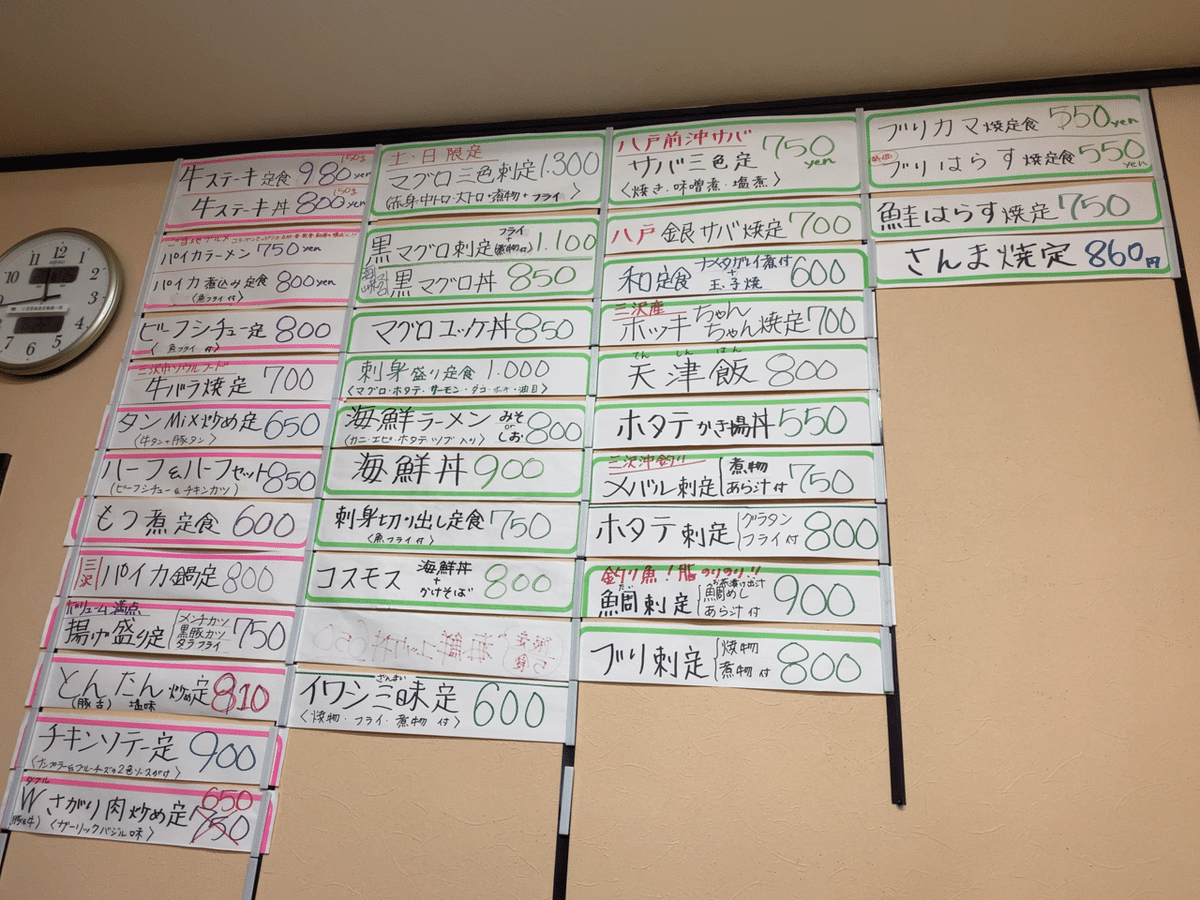 牛ステーキ定食 980yen 150g
牛ステーキ丼 800yen 150g
パイカラーメン 750yen
パイカ煮込み定食 800yen
(魚フライ付)
ビーフシチュー定 800
(魚フライ付)
三沢市ソウルフード
牛バラ焼定 700
タンMix炒め定 650
(牛タン+豚タン)
ハーフ&ハーフセット 850
(ビーフシチュー&チキンカツ)
もつ煮定食 600
三沢 パイカ鍋定 800
ボリューム満点
揚げ盛り定 750
メンチカツ
黒豚カツ
タラフライ
とんたん炒め定 810
(豚舌) 塩味
チキンソテー定 900
ダブル
Wさがり肉炒め定 650
750
(豚&牛) 〈ガーリックバジル味〉
土・日限定
マグロ三色刺定 1.300
(赤身・中トロ・大トロ・煮物+フライ)
黒マグロ刺定 フライ+煮物付 1.100
黒マグロ丼 850
マグロユッケ丼 850
刺身盛り定食 1.000
海鮮ラーメン みそorしお 800
(カニ・エビ・ホタテ・ツブ入り)
海鮮丼 900
刺身切り出し定食 750
〈魚フライ付〉
コスモス 海鮮丼+かけそば 800
イワシ三昧定 600
ざんまい
〈焼物・フライ・煮物 付〉
八戸前沖サバ
サバ三色定 750yen
〈焼き・味噌煮・塩煮〉
八戸銀サバ焼定 700
和定食 ナメタガレイ煮付+玉子焼 600
三沢産
ホッキちゃんちゃん焼定 700
てんしんはん
天津飯 800
ホタテかき揚丼 550
三沢沖釣り
メバル刺定 煮物 あら汁付 750
ホタテ刺定 グラタン フライ付 800
釣り魚!脂のりのり!!
鯛刺定 900
たい
お茶漬け出汁
鯛めし
あら汁付
ブリ刺定 焼物 煮物付 800
ブリカマ焼定食 550yen
ブリはらす焼定食 550yen
鮭はらす焼定 750
さんま焼定 860円
12
11
10
9
8
7
6
5
4
3
2
1